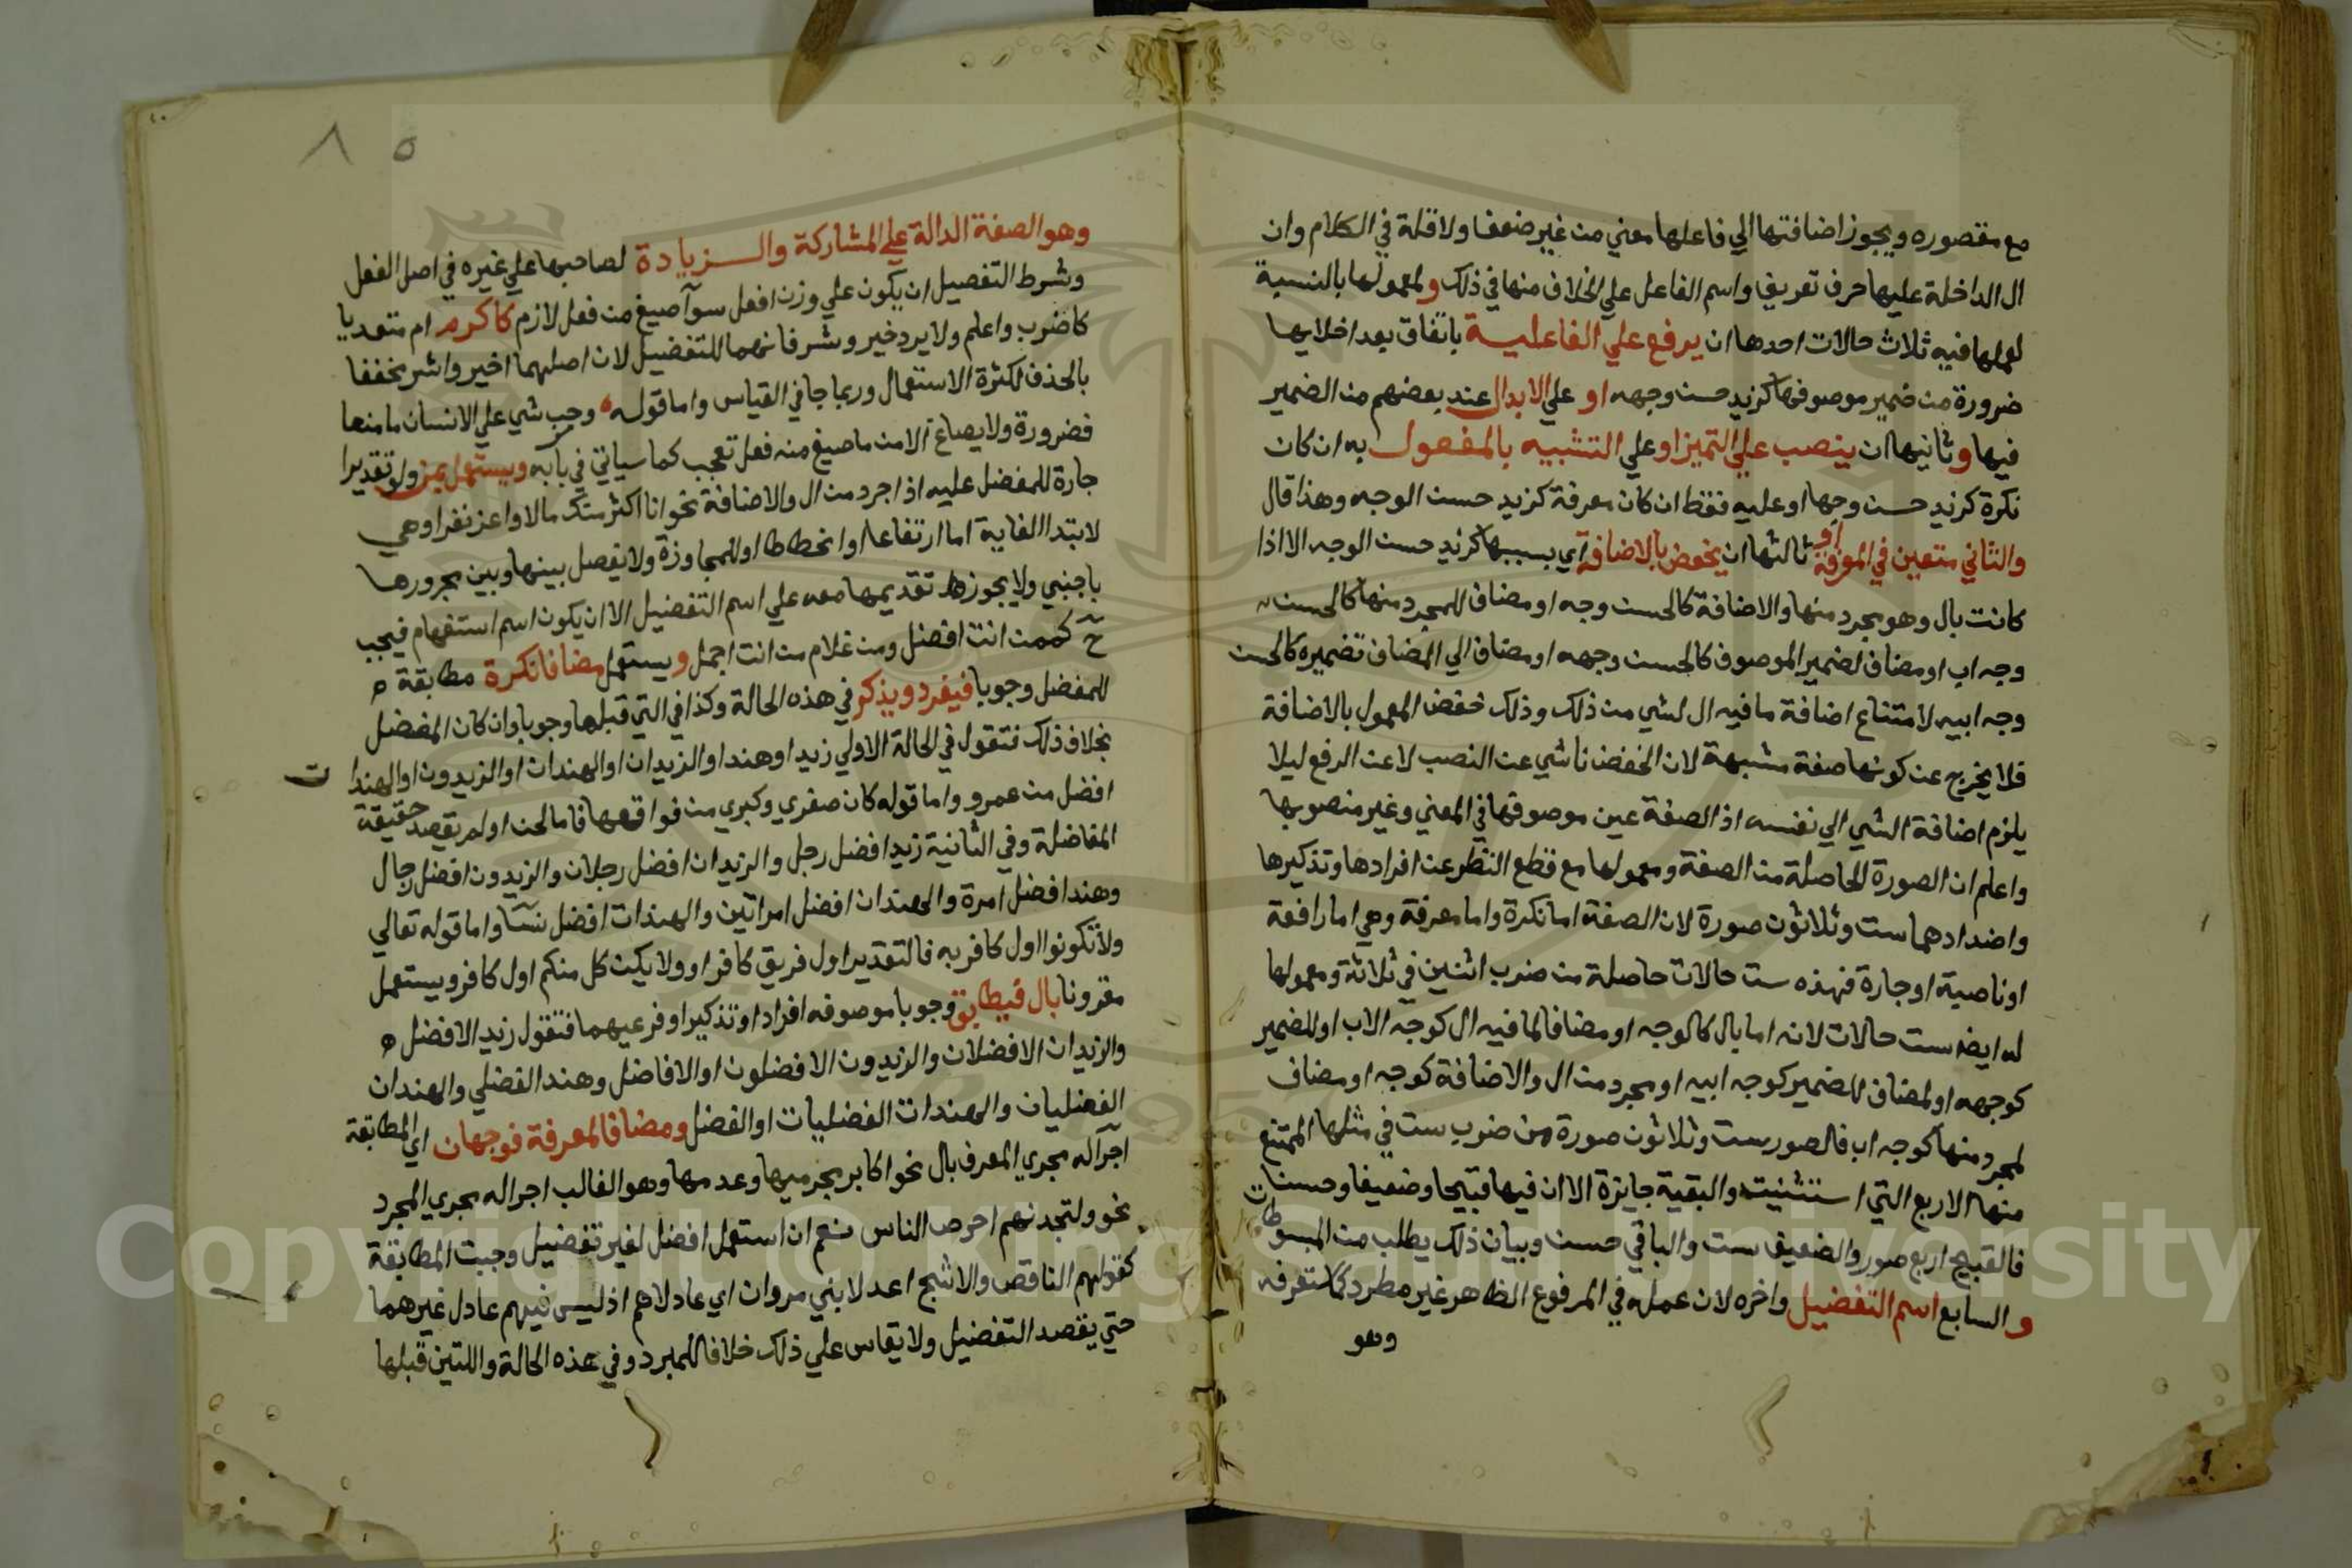 مع مقصوره ويجوز اضافتها الي فاعلها معني من غير ضعف ولا قلة في الكلام وان
ال الداخلة عليها حرف تعريف واسم الفاعل علي الخلاف منها في ذلك ولمعمولها بالنسبة
لعملها فيه ثلاث حالات احدها ان يرفع علي الفاعلية باتفاق بعد اخلايها
ضرورة من ضمير موصوفها كزيد حسن وجهه او علي الابدال عند بعضهم من الضمير
فيها وثانيها ان ينصب علي التميز او علي التشبيه بالمفعول به ان كان
نكرة كزيد حسن وجها او عليه فقط ان كان معرفة كزيد حسن الوجه وهذا قال
والثاني متعين في المعرفة او ثالثها ان يخفض بالاضافة اي بسببها كزيد حسن الوجه الا اذا
كانت بال وهو مجرد منها والاضافة كالحسن وجه او مضاف للمجرد منها كالحسن
وجه اب او مضاف لضمير الموصوف كالحسن وجهه او مضاف الي المضاف لضميره كالحسن
وجه ابيه لامتناع اضافة ما فيه ال لشي من ذلك وذلك خفض المعمول بالاضافة
فلا يخرج عن كونها صفة مشبهة لان الخفض ناشي عن النصب لا عن الرفع ليلا
يلزم اضافة الشي الي نفسه اذ الصفة عين موصوفها في المعني وغير منصوبها
واعلم ان الصورة الحاصلة من الصفة ومعمولها مع قطع النظر عن افرادها وتذكيرها
واضدادهما ست وثلاثون صورة لان الصفة اما نكرة واما معرفة وهي اما رافعة
او ناصبة او جارة فهذه ست حالات حاصلة من ضرب اثنين في ثلاثة ومعمولها
له ايضا ست حالات لانه اما بال كالوجه او مضافا لما فيه ال كوجه الاب او للضمير
كوجهه او لمضاف للضمير كوجه ابيه او مجرد من ال والاضافة كوجه او مضاف
لمجرد منها كوجه اب فالصور ست وثلاثون صورة من ضرب ست في مثلها الممتنع
منها الاربع التي استثنيت والبقية جايزة الا ان فيها قبيحا وضعيفا وحسنا
فالقبيح اربع صور والضعيف ست والباقي حسن وبيان ذلك يطلب من المبسوطات
والسابع اسم التفضيل واخره لان عمله في المرفوع الظاهر غير مطرد كما ستعرفه
وهو
٨٥
وهو الصفة الدالة علي المشاركة والزيادة لصاحبها علي غيره في اصل الفعل
وشرط التفصيل ان يكون علي وزن افعل سوآ صيغ من فعل لازم كاكرم ام متعديا
كاضرب واعلم ولا يرد خير وشر فانهما للتفضيل لان اصلهما اخير واشر فخففا
بالحذف لكثرة الاستعمال وربما جا في القياس واما قوله وحب شي علي الانسان ما منعا
فضرورة ولا يصاغ الا من ما صيغ منه فعل تعجب كما سياتي في بابه ويستعمل بمن ولو تقديرا
جارة للمفضل عليه اذا جرد من ال والاضافة نحو انا اكثر منك مالا واعز نفرا وهي
لابتدا الغاية اما ارتفاعا او انحطاطا او للمجاوزة ولا يفصل بينها وبين مجرورها
باجنبي ولا يجوز تقديمها معه علي اسم التفضيل الا ان يكون اسم استفهام فيجب
ح كممن انت افضل ومن غلام من انت اجمل ويستعمل مضافا لنكرة مطابقة
للمفضل وجوبا فيفرد ويذكر في هذه الحالة وكذا في التي قبلها وجوبا وان كان المفضل
بخلاف ذلك فتقول في الحالة الاولي زيد او هند او الزيدان او الهندان او الزيدون او الهندات
افضل من عمرو واما قوله كان صغري وكبري من فواقعها فاما لحن او لم يقصد حقيقة
المفاضلة وفي الثانية زيد افضل رجل والزيدان افضل رجلان والزيدون افضل رجال
وهند افضل امرة والهندان افضل امراتين والهندات افضل نسآ واما قوله تعالي
ولا تكونوا اول كافر به فالتقدير اول فريق كافر او ولا يكن كل منكم اول كافر ويستعمل
مقرونا بال فيطابق وجوبا موصوفه افرادا وتذكيرا وفرعيهما فتقول زيد الافضل
والزيدان الافضلان والزيدون الافضلون او الافاضل وهند الفضلي والهندان
الفضليان والهندات الفضليات او الفضل ومضافا لمعرفة فوجهان اي المطابقة
اجراله مجري المعرف بال نحو اكابر مجرميها وعدمها وهو الغالب اجراله مجري المجرد
نحو ولتجدنهم احرص الناس نعم ان استعمل افضل لغير تفضيل وجبت المطابقة
كقولهم الناقص والاشج اعدلا بني مروان اي عادلاهم اذ ليس فيهم عادل غيرهما
حتي يقصد التفضيل ولا يقاس علي ذلك خلافا للمبرد وفي هذه الحالة واللتين قبلها
Copyright © King Saud University